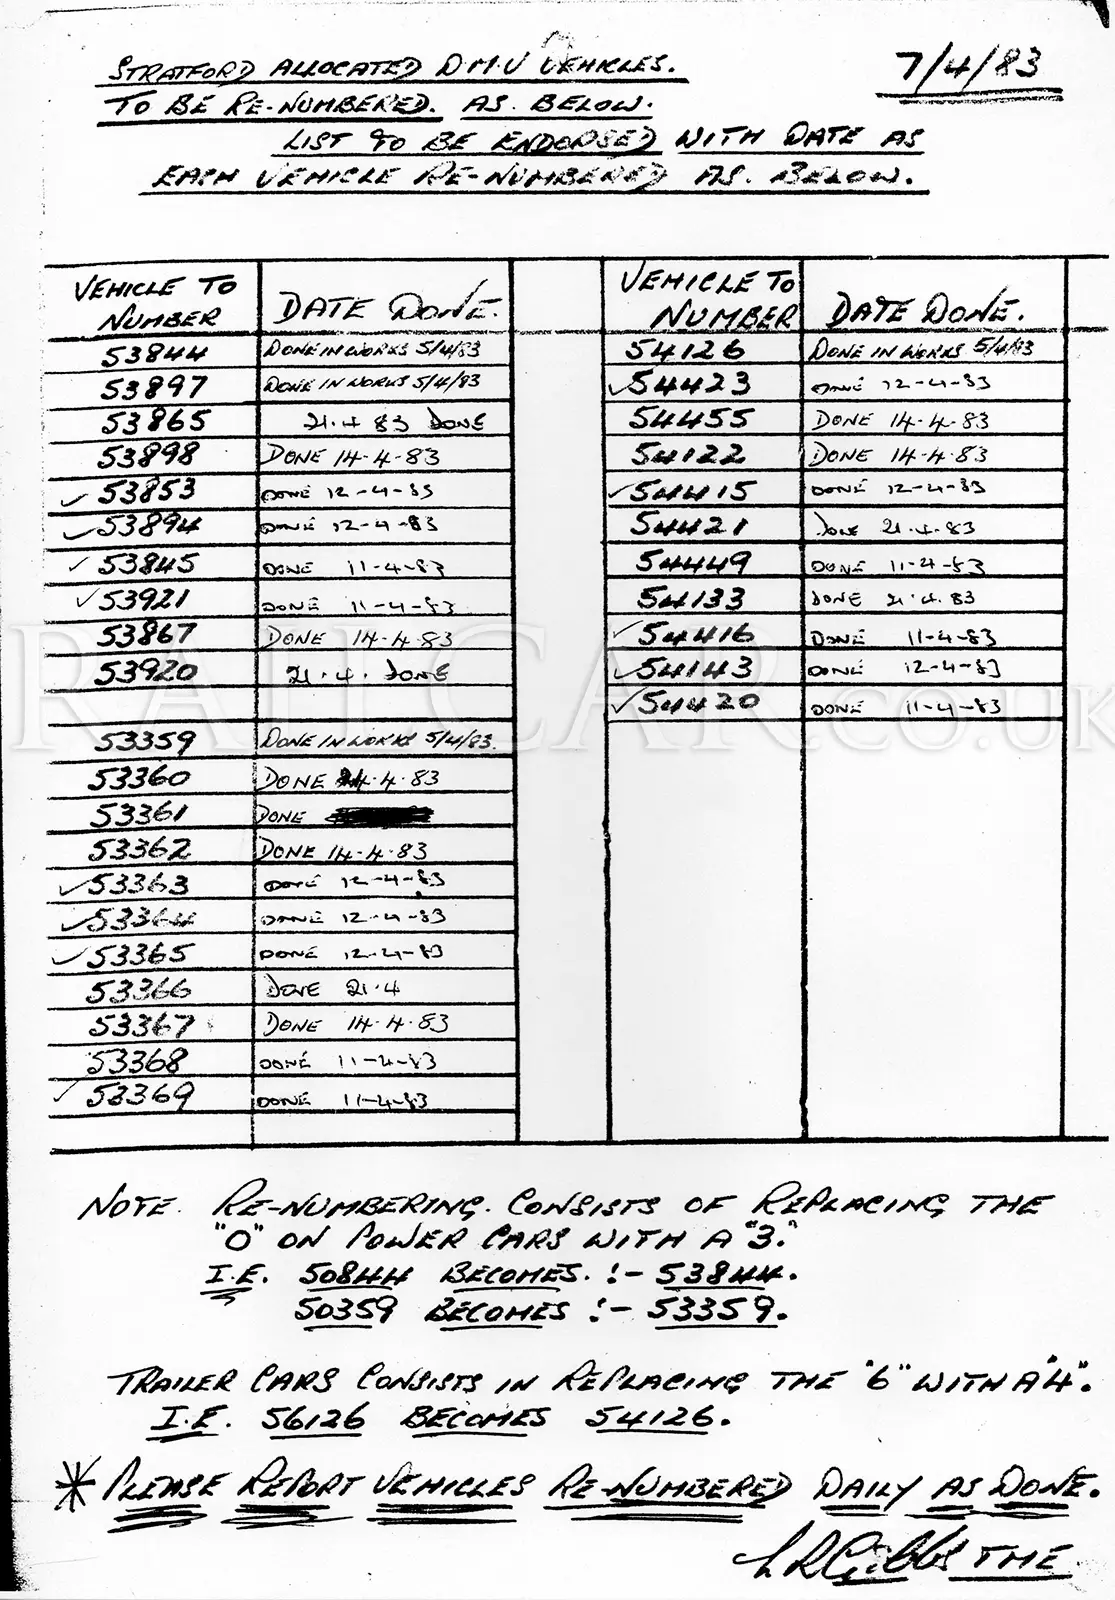 STRATFORD ALLOCATED D.M.U VEHICLES.
7/4/83
TO BE RE-NUMBERED. AS. BELOW.
LIST TO BE ENDORSED WITH DATE AS
EACH VEHICLE RE-NUMBERED AS. BELOW.
VEHICLE TO NUMBER DATE DONE. VEHICLE TO NUMBER DATE DONE.
53844 DONE IN WORKS 5/4/83 54126 DONE IN WORKS 5/4/83
53897 DONE IN WORKS 5/4/83 ✓54423 DONE 12-4-83
53865 21.4 83 DONE 54455 DONE 14-4-83
53898 DONE 14-4-83 54122 DONE 14-4-83
✓53853 DONE 12-4-83 ✓54415 DONE 12-4-83
✓53894 DONE 12-4-83 54421 DONE 21.4.83
✓53845 DONE 11-4-83 54449 DONE 11-4-83
✓53921 DONE 11-4-83 54133 DONE 21.4.83
53867 DONE 14-4-83 ✓54416 DONE 11-4-83
53920 21.4. DONE ✓54143 DONE 12-4-83
✓54420 DONE 11-4-83
53359 DONE IN WORKS 5/4/83.
53360 DONE 4.83
53361 DONE
53362 DONE 14-4-83
✓53363 DONE 12-4-83
✓53364 DONE 12-4-83
✓53365 DONE 12-4-83
53366 DONE 21.4
53367 DONE 14.4.83
53368 DONE 11-4-83
✓53369 DONE 11-4-83
NOTE. RE-NUMBERING. CONSISTS OF REPLACING THE
"0" ON POWER CARS WITH A "3."
I.E. 50844 BECOMES. :- 53844.
50359 BECOMES :- 53359.
TRAILER CARS CONSISTS IN REPLACING THE "6" WITH A "4".
I.E. 56126 BECOMES 54126.
* PLEASE REPORT VEHICLES RE-NUMBERED DAILY AS DONE.
LR Gibbs TME
RAILCAR.co.uk